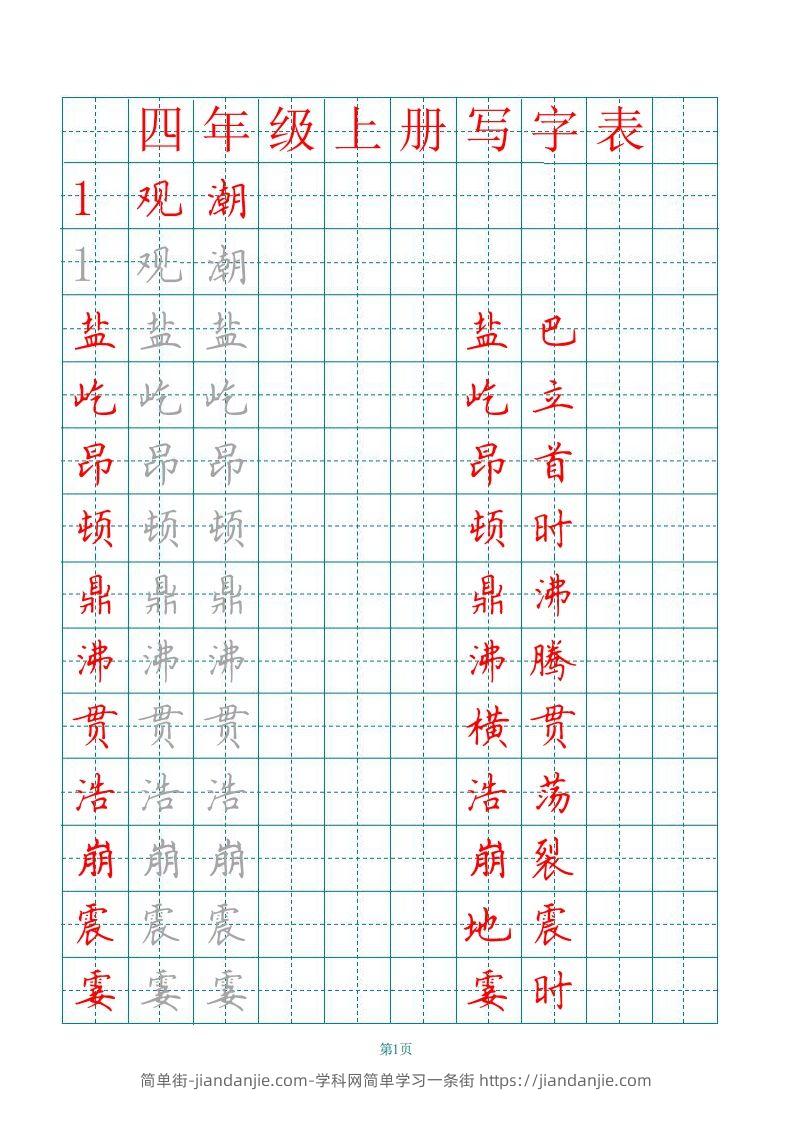 四年级上册写字表
1 观潮
1 观潮
盐 盐 盐 盐巴
屹 屹 屹 屹立
昂 昂 昂 昂首
顿 顿 顿 顿时
鼎 鼎 鼎 鼎沸
沸 沸 沸 沸腾
贯 贯 贯 横贯
浩 浩 浩 浩荡
崩 崩 崩 崩裂
震 震 震 地震
霎 霎 霎 霎时
第1页
简单街-jiandanjie.com-学科网简单学习一条街 https://jiandanjie.com